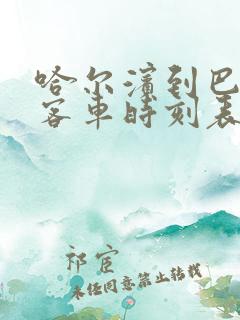 哈尔滨到巴
客车时刻表
祁宦
未经同意禁止转载